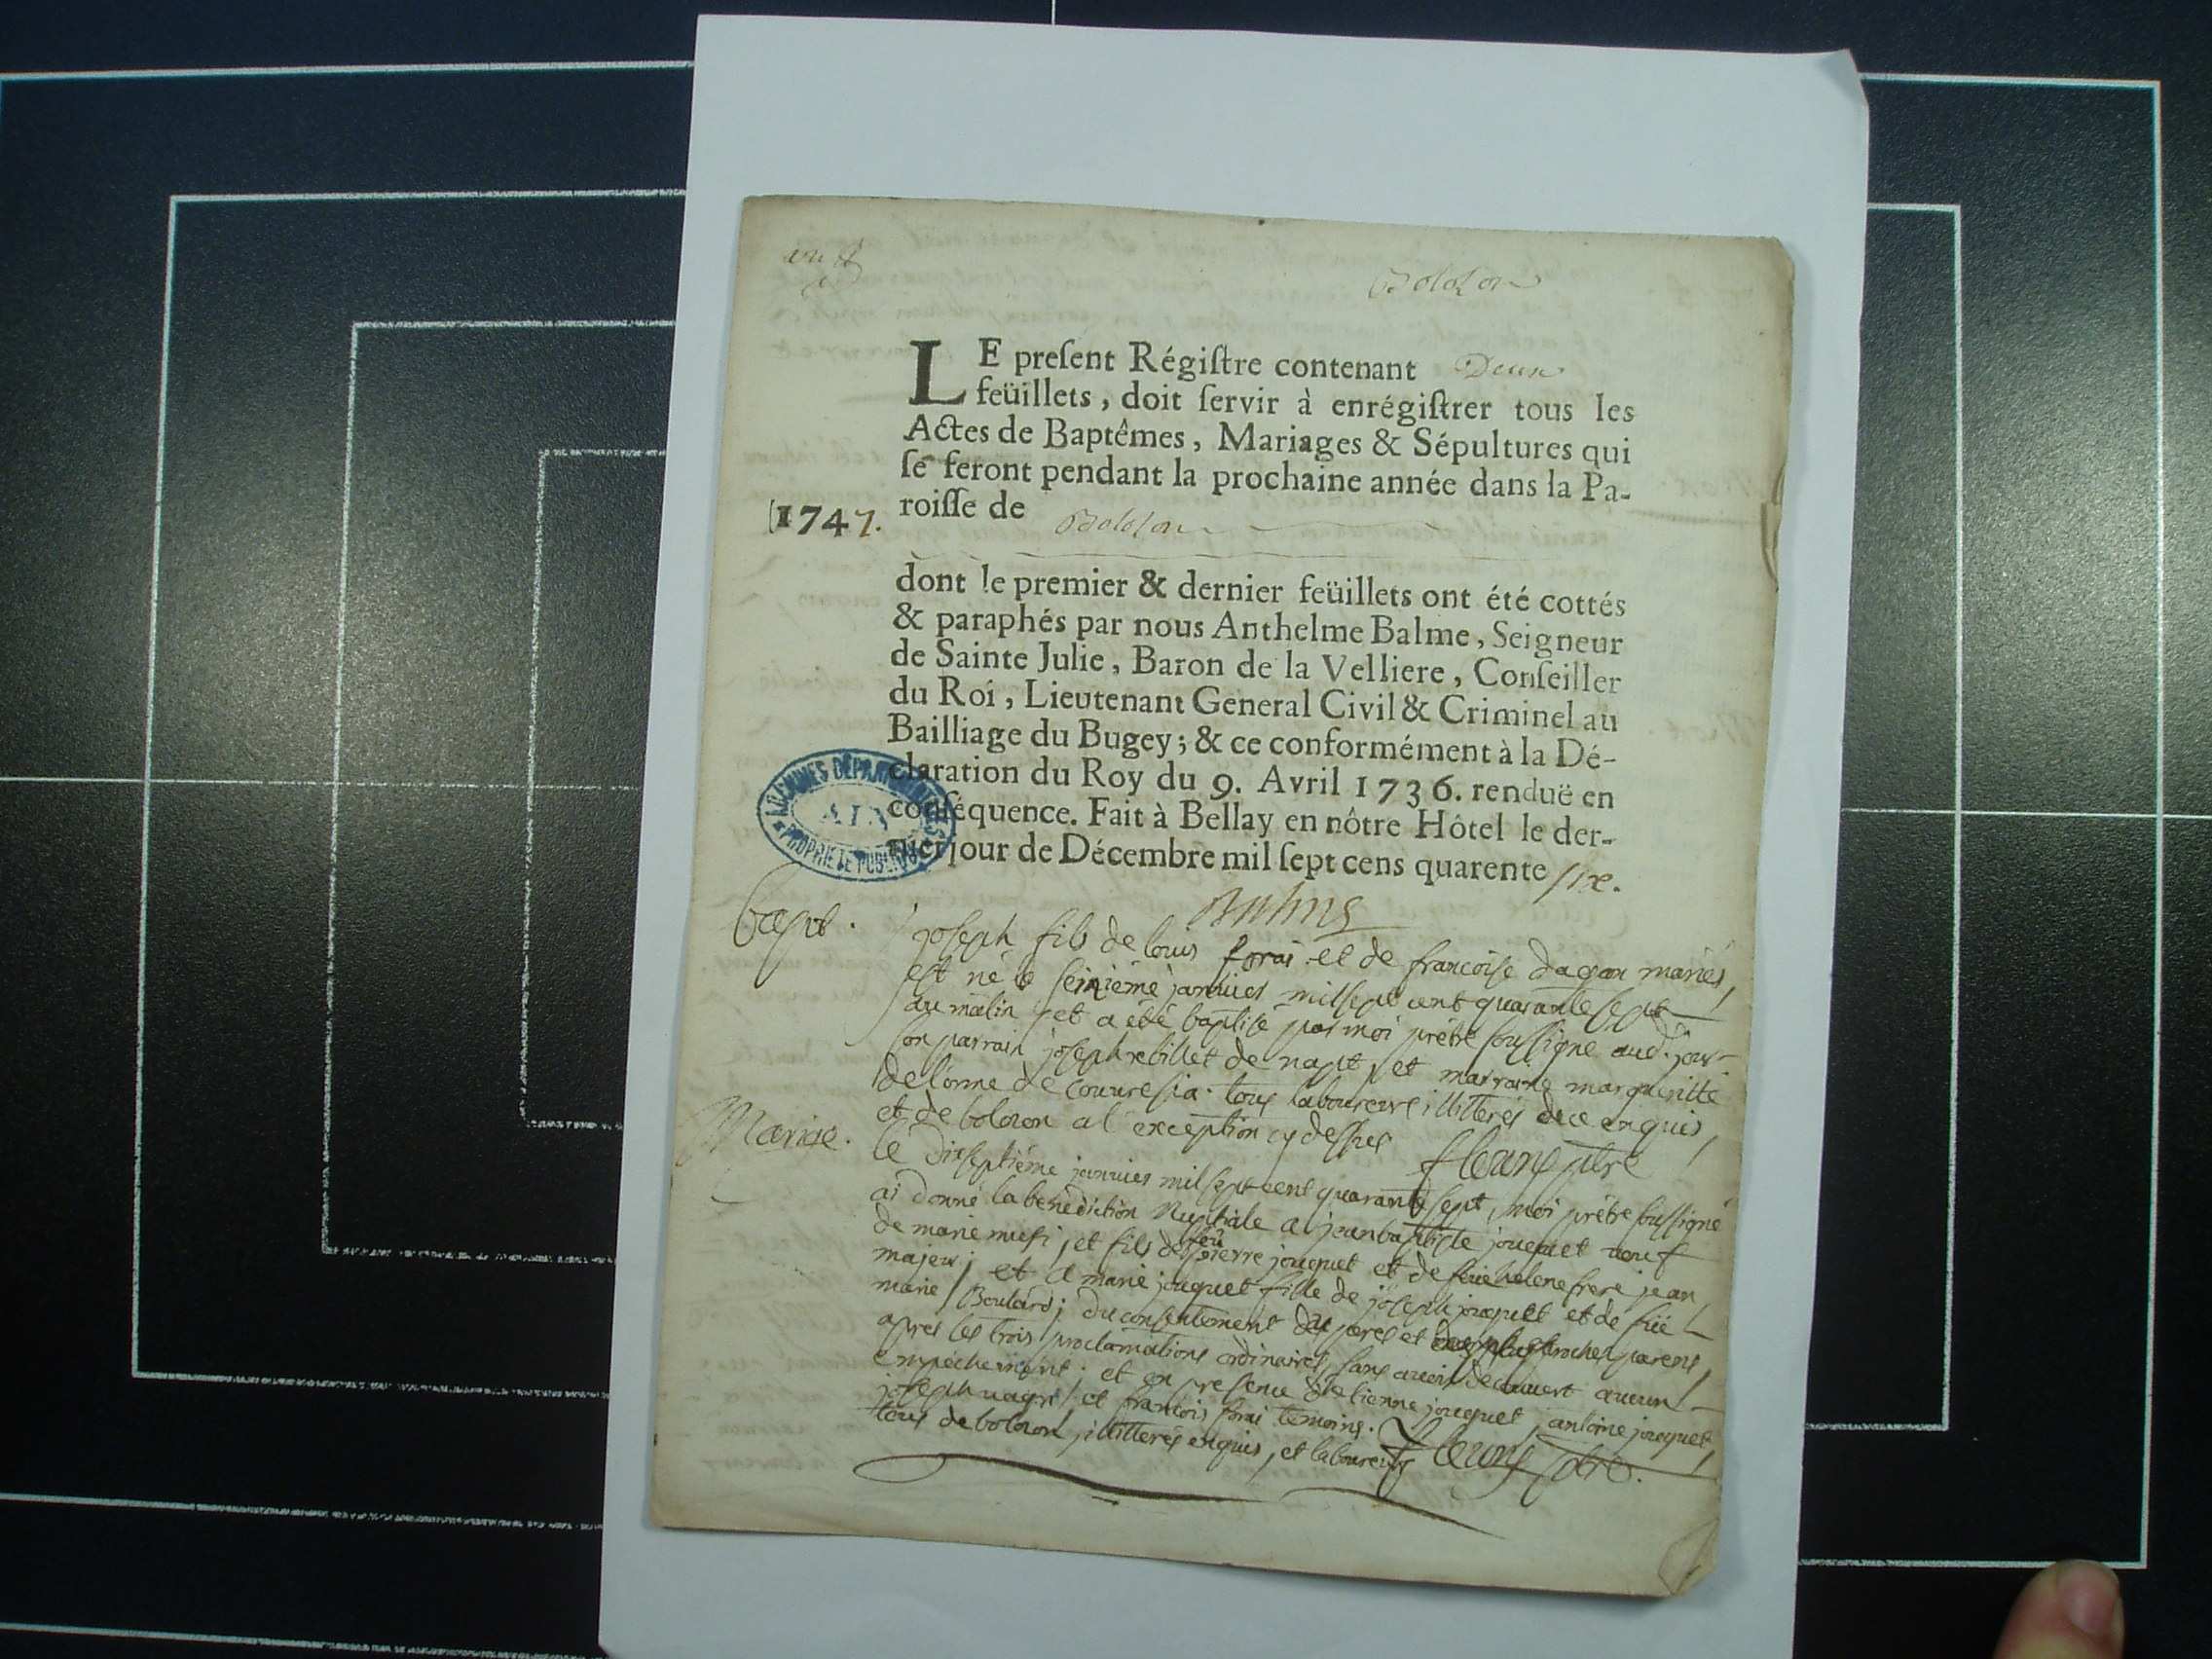 Bolozon
LE preſent Régiſtre contenant Deux
feüillets, doit ſervir à enrégiſtrer tous les
Actes de Baptêmes, Mariages & Sépultures qui
ſe feront pendant la prochaine année dans la Pa-
roiſſe de Bolozon
1747.
dont le premier & dernier feüillets ont été cottés
& paraphés par nous Anthelme Balme, Seigneur
de Sainte Julie, Baron de la Velliere, Conſeiller
du Roi, Lieutenant General Civil & Criminel au
Bailliage du Bugey; & ce conformément à la Dé-
claration du Roy du 9. Avril 1736. renduë en
conſéquence. Fait à Bellay en nôtre Hôtel le der-
nier jour de Décembre mil ſept cens quarente six.
ARCHIVES DÉPARTEMENTALES
AIN
PROPRIÉTÉ PUBLIQUE
Bapt.
joseph fils de louis forai et de francoise dagan mariés,
est né le seizième janvier mil sept cent quarante sept
au matin et a été baptisé par moi prêtre soussigné aud. jour
son parrain joseph rebillet de napt, et marraine margueritte
delorme de couvresia. tous laboureurs illitterés de ce enquis,
et de bolozon a l'exception cy dessus
Mariage.
le dixseptiéme janvier mil sept cent quarante sept, moi prêtre soussigné
ai donné la benediction nuptiale a jean baptiste jouquet veuf
de marie , et fils de feû pierre jouquet et de feüe helene frere jean
majeur; et a marie jouquet fille de joseph jouquet et de feüe
marie Boulard; du consentement des peres et proches parens,
apres les trois proclamations ordinaires, sans avoir decouvert aucun
empéchement; et en presence d'etienne jouquet, antoine jouquet
joseph et francois forai temoins.
tous de bolozon, illitterés enquis, et laboureurs